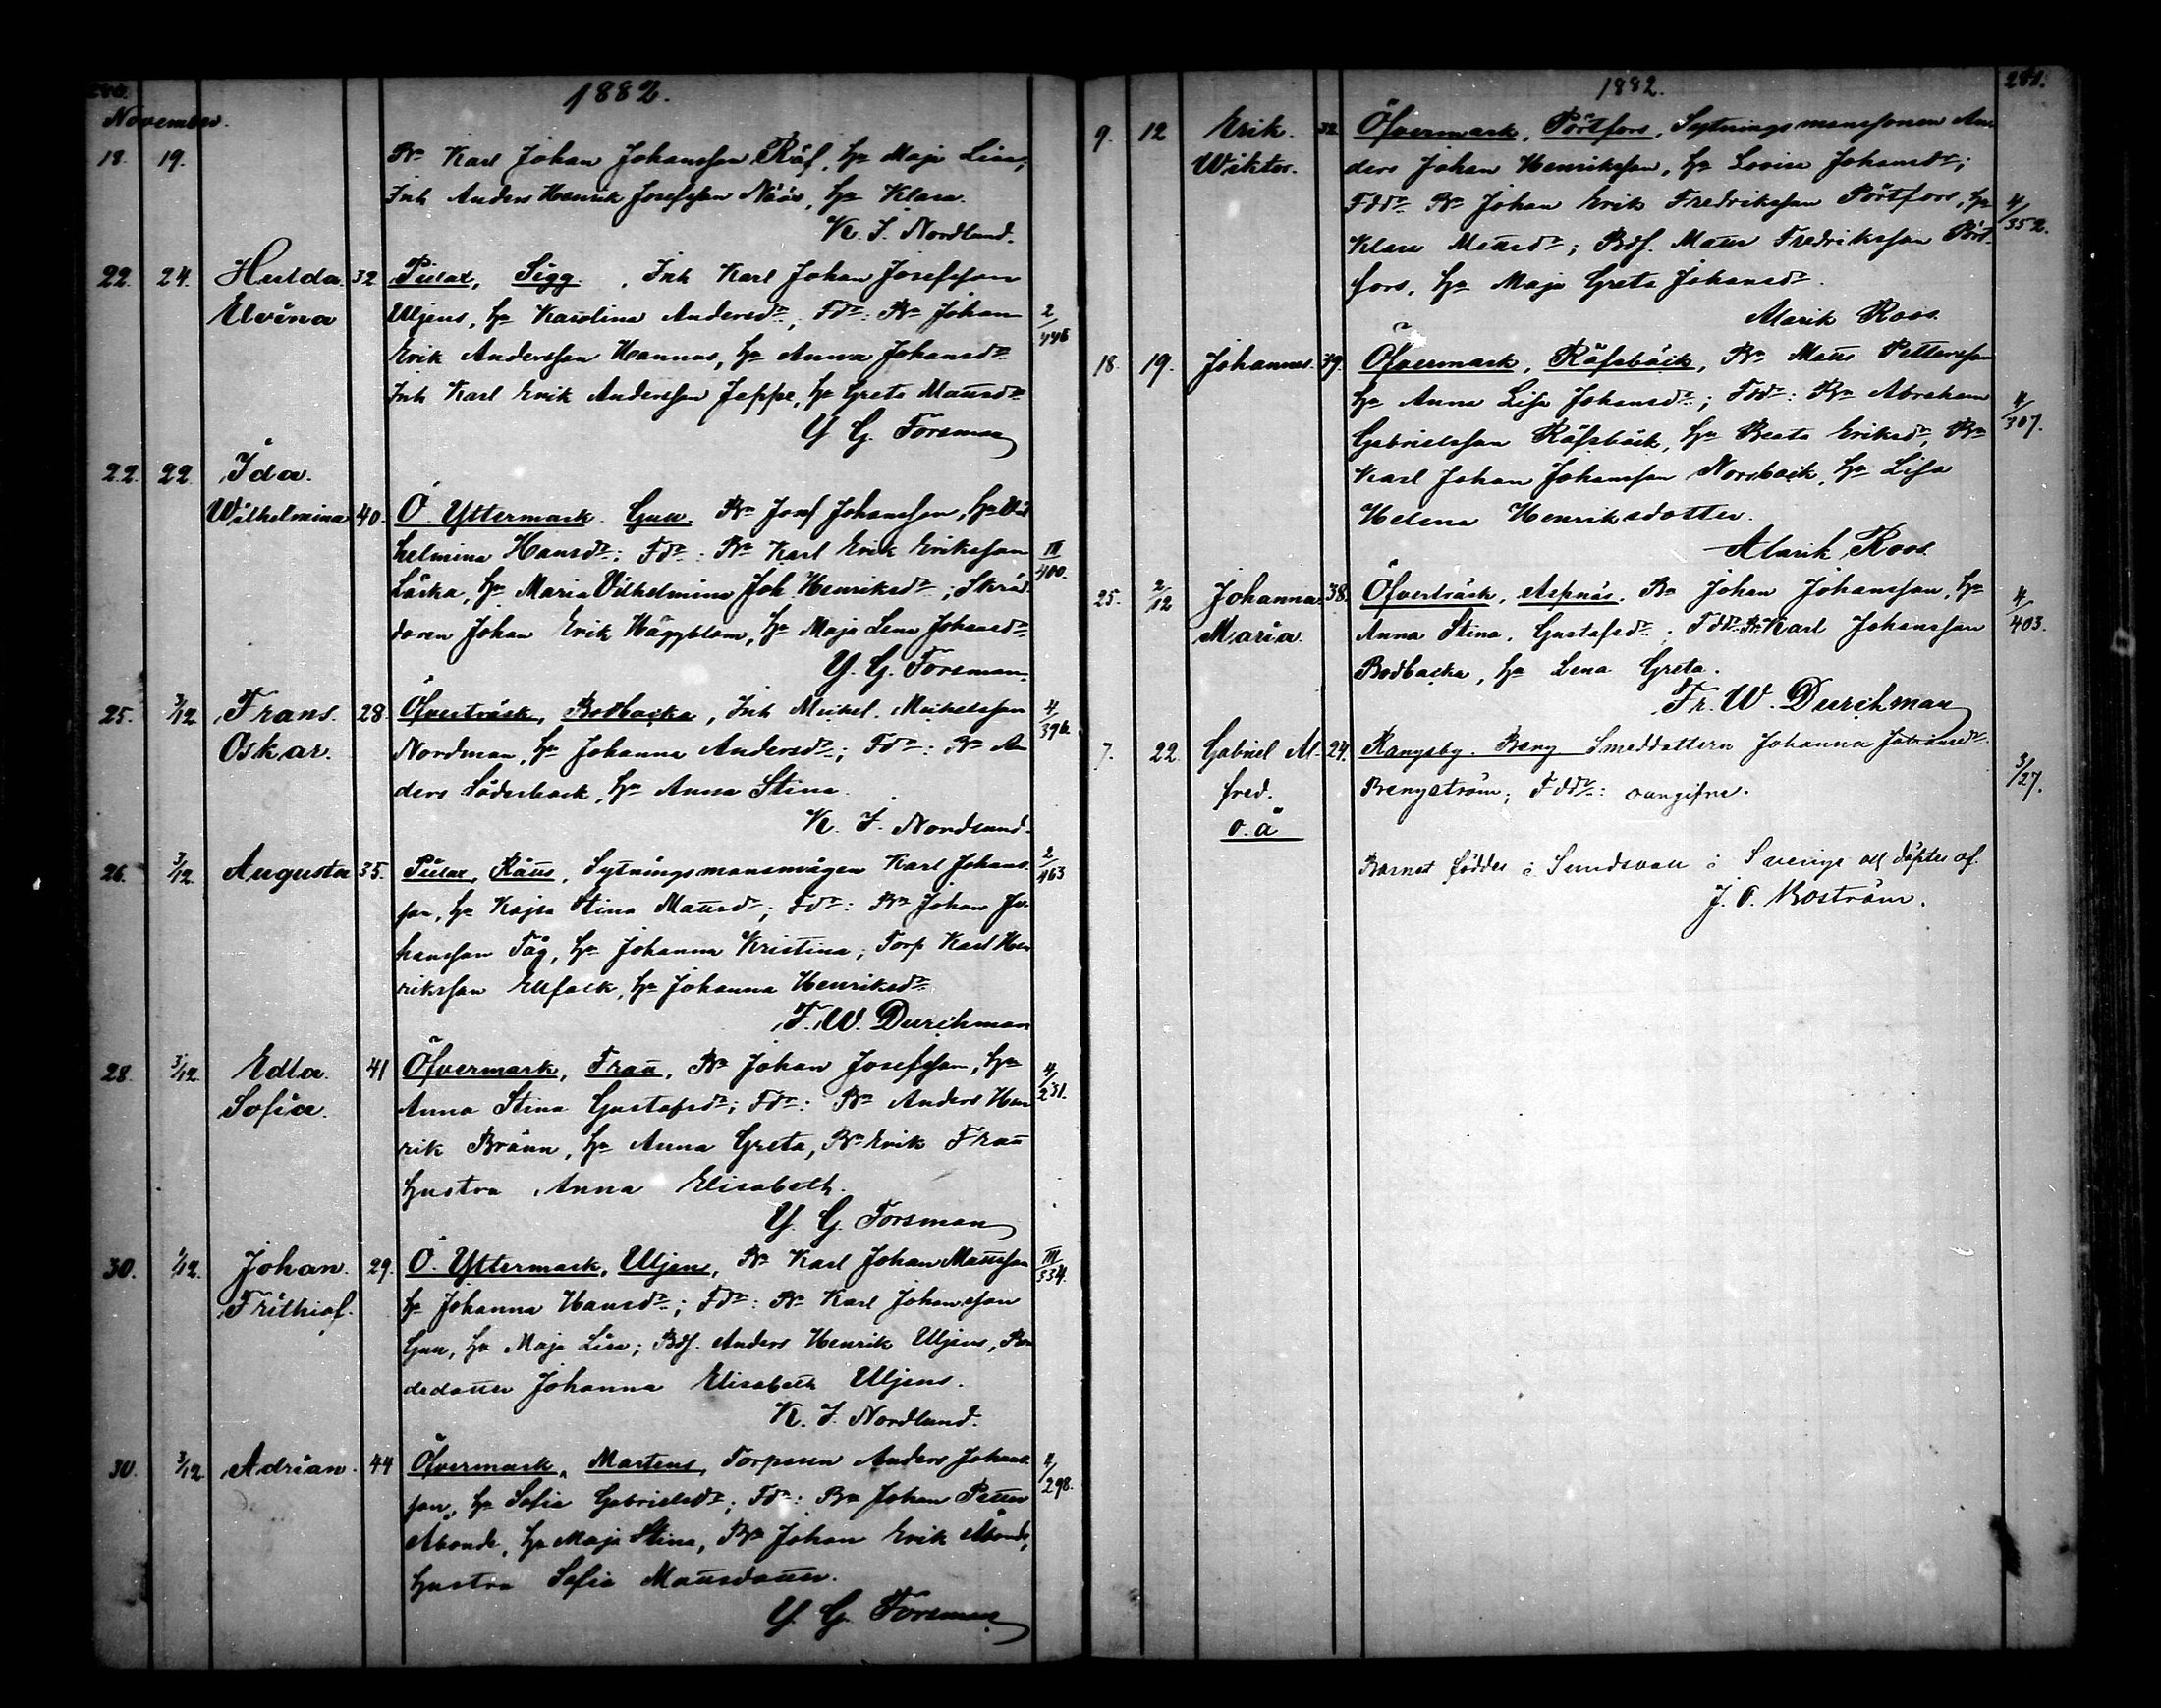 280.
1882.
November.
18. 19. Bn Karl Johan Johansson Räf, Ha Maja Lisa,
Inh Anders Henrik Josefsson Näsi, Ha Klara.
K. J. Nordlund.
22. 24. Hulda 32 Pielax, Sigg. , Inh Karl Johan Josefsson
Elvina Uljens, Ha Karolina Andersdr; Fdr: Bn Johan 2/446
Erik Andersson Hannus, Ha Anna Johansdr
Inh Karl Erik Andersson Jeppe, Ha Greta Mausdr
Y G. Forsman
22. 22. Ida
Wilhelmina 40. Ö. Yttermark. Gull. Bn Josef Johansson, Ha Vil
helmina Hansdr; Fdr: Bn Karl Erik Eriksson III/400.
Läcka, Ha Maria Vilhelmina Joh. Henriksdr; Skräd
daren Johan Erik Häggblom, Ha Maja Lena Johansdr
Y. G. Forsman.
25. 3/12 Frans 28. Öfverträsk, Bodbacka, Inh Mickel Mickelsson 4/396
Oskar. Nordman, Ha Johanna Andersdr; Fdr: Bn An
ders Söderback, Ha Anna Stina.
K. J. Nordlund.
26. 3/12. Augusta 35. Pielax, Räns, Sytningsmansmågen Karl Johans 2/463
son, Ha Kajsa Stina Mausdr; Fdr: Bn Johan Jo
hansson Tåg, Ha Johanna Kristina; Torp Karl Hen
riksson Ellfolk, Ha Johanna Henriksdr
F. W. Durchman
28. 3/12. Edla 41 Öfvermark, Frau, Bn Johan Josefsson, Ha 4/231.
Sofia. Anna Stina Gustafsdr; Fdr: Bn Anders Hen
rik Bränn, Ha Anna Greta, Bn Erik Frau
Hustru Anna Elisabeth.
Y. G. Forsman
30. 1/12. Johan 29. Ö. Yttermark, Uljens, Bn Karl Johan Mausson III/334.
Frithiof. Ha Johanna Hansdr; Fdr: Bn Karl Johansson
Gull, Ha Maja Lisa; Bdf. Anders Henrik Uljens, Bon
dedotter Johanna Elisabeth Uljens.
K. J. Nordlund.
30. 3/12 Adrian. 44 Öfvermark, Martens, Torparen Anders Johans 4/298.
son, Ha Sofia Gabrielsdr; Fdr: Bn Johan Petter
Åbonde, Ha Maja Stina, Bn Johan Erik Åbonde,
Hustru Sofia Mausdotter.
Y. G. Forsman
1882. 281.
9. 12 Erik 32. Öfvermark, Pörtfors, Sytningsmanssonen An
Wiktor. ders Johan Henriksson, Ha Lovisa Johansdr;
Fddr Bn Johan Erik Fredriksson Pörtfors, Ha 4/352.
Klara Mausdr; Bdf. Maus Fredriksson Pört
fors, Ha Maja Greta Johansdr.
Alarik Roos.
18. 19. Johannes. 39. Öfvermark, Räfsbäck, Bn Maus Pettersson
Ha Anna Lisa Johansdr; Fddr: Bn Abraham 4/307.
Gabrielsson Räfsbäck, Ha Beata Eriksdr, Bn
Karl Johan Johansson Norrback, Ha Lisa
Helena Henriksdotter.
Alarik Roos.
25. 2/12 Johanna 38. Öfverträsk, Aspnäs. Bn Johan Johansson, Ha 4/403.
Maria. Anna Stina, Gustafsdr; Fddr: Bn Karl Johansson
Bodbacka, Ha Lena Greta.
Fr. W. Durchman
7. 22. Gabriel Al 24. Rangsby. Beng Smeddottern Johanna Johansdr
fred. Bengström; Fddr: oangifne. 3/27.
o. ä
Barnet föddes i Sundsvall i Sverige och döptes af
J. O. Boström.